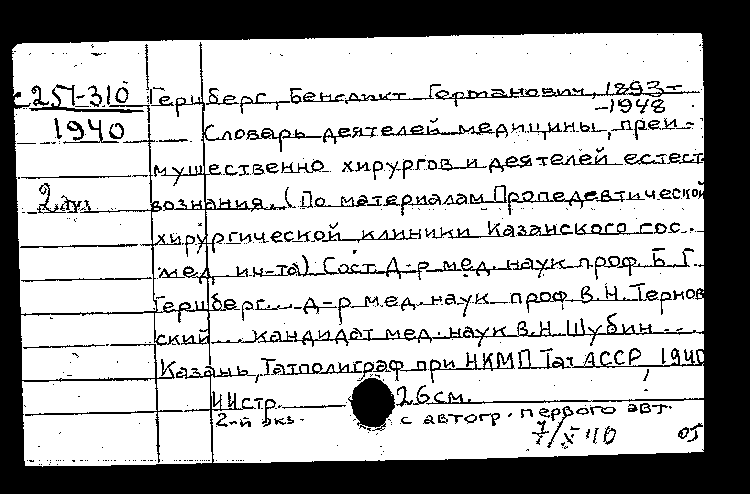 с 257-310 Герцберг, Бенедикт Германович, 1893-
-1948
1940 Словарь деятелей медицины, преи-
мущественно хирургов и деятелей естест
2 экз вознания. (По материалам Пропедевтической
хирургической клиники Казанского гос.
мед. ин-та) Сост. Д-р мед. наук проф. Б. Г.
Герцберг... д-р мед. наук проф. В.Н. Тернов
ский... кандидат мед. наук В.Н. Шубин ....
Казань, Татполиграф при НКМП Тат АССР, 1940
11 стр. 26 см.
2-й экз. с автогр. первого авт.
7/X 40 05